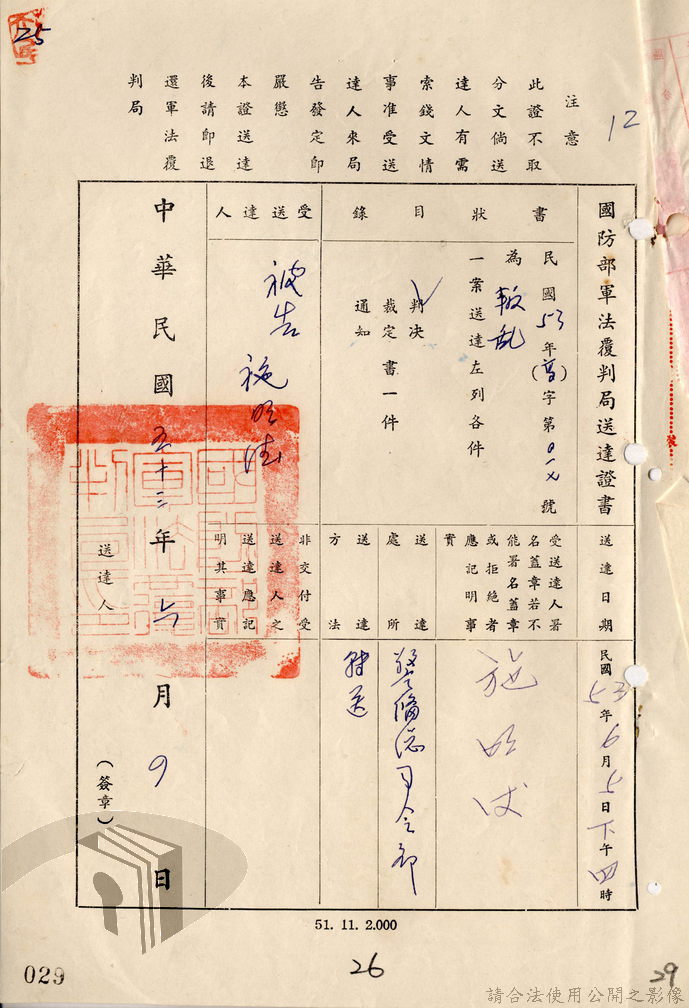 25
12
注意
此證不取
分文倘送
達人有需
索錢文情
事准受送
達人來局
告發定即
嚴懲
本證送達
後請即退
還軍法覆
判局
國防部軍法覆判局送達證書
送達日期
民國53年6月5日下午四時
書狀目錄
民國53年(高)字第 號
為叛乱
一案送達左列各件
判決
裁定書一件
通知
受送達人署
名蓋章若不
能署名蓋章
或拒絕者
應記明事
實
施明
送達處所
警備總司令部
送達方法
轉送
受送達人
被告 施明
非交付受
送達人之
送達應記
明其事實
中華民國五十三年六月 日
送達人
(簽章)
51. 11. 2.000
029
26
29
請合法使用公開之影像